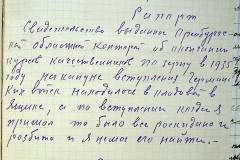 Рапорт
Свидетельство выданное
кой областной конторой об окончании
курсов качественников по зерну в 1935
году накануне вступления Герман
ких войск находилось в кладовой в
Ящике, а по вступлении когда я
пришол то было все роскидано и
розбито и я немог его найти.